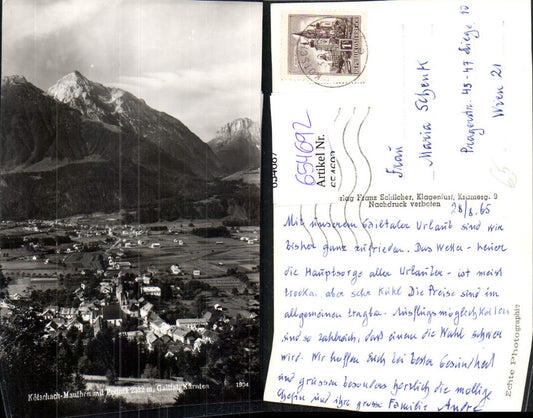 Kötschach-Mauthen mit Polinik 2332 m, Gailtal, Kärnten 1904
654692
Artikel Nr.
654692
Frau
Maria Schenk
Pragerstr. 43-47 Stiege 10
Wien 21
rlag Franz Schilcher, Klagenfurt, Kramerg. 9
Nachdruck verboten
28/8.65
Mit unserem Gailtaler Urlaub sind wir
bisher ganz zufrieden. Das Wetter - heuer
die Hauptsorge aller Urlauber - ist meist
trocken aber sehr kühl. Die Preise sind im
allgemeinen tragbar. Ausflugsmöglichkeiten
sind so zahlreich, daß einem die Wahl schwer
wird. Wir hoffen Euch bei bester Gesundheit
und grüssen besonders herzlich die mollige
Chefin und ihre ganze Familie André
Echte Photographie